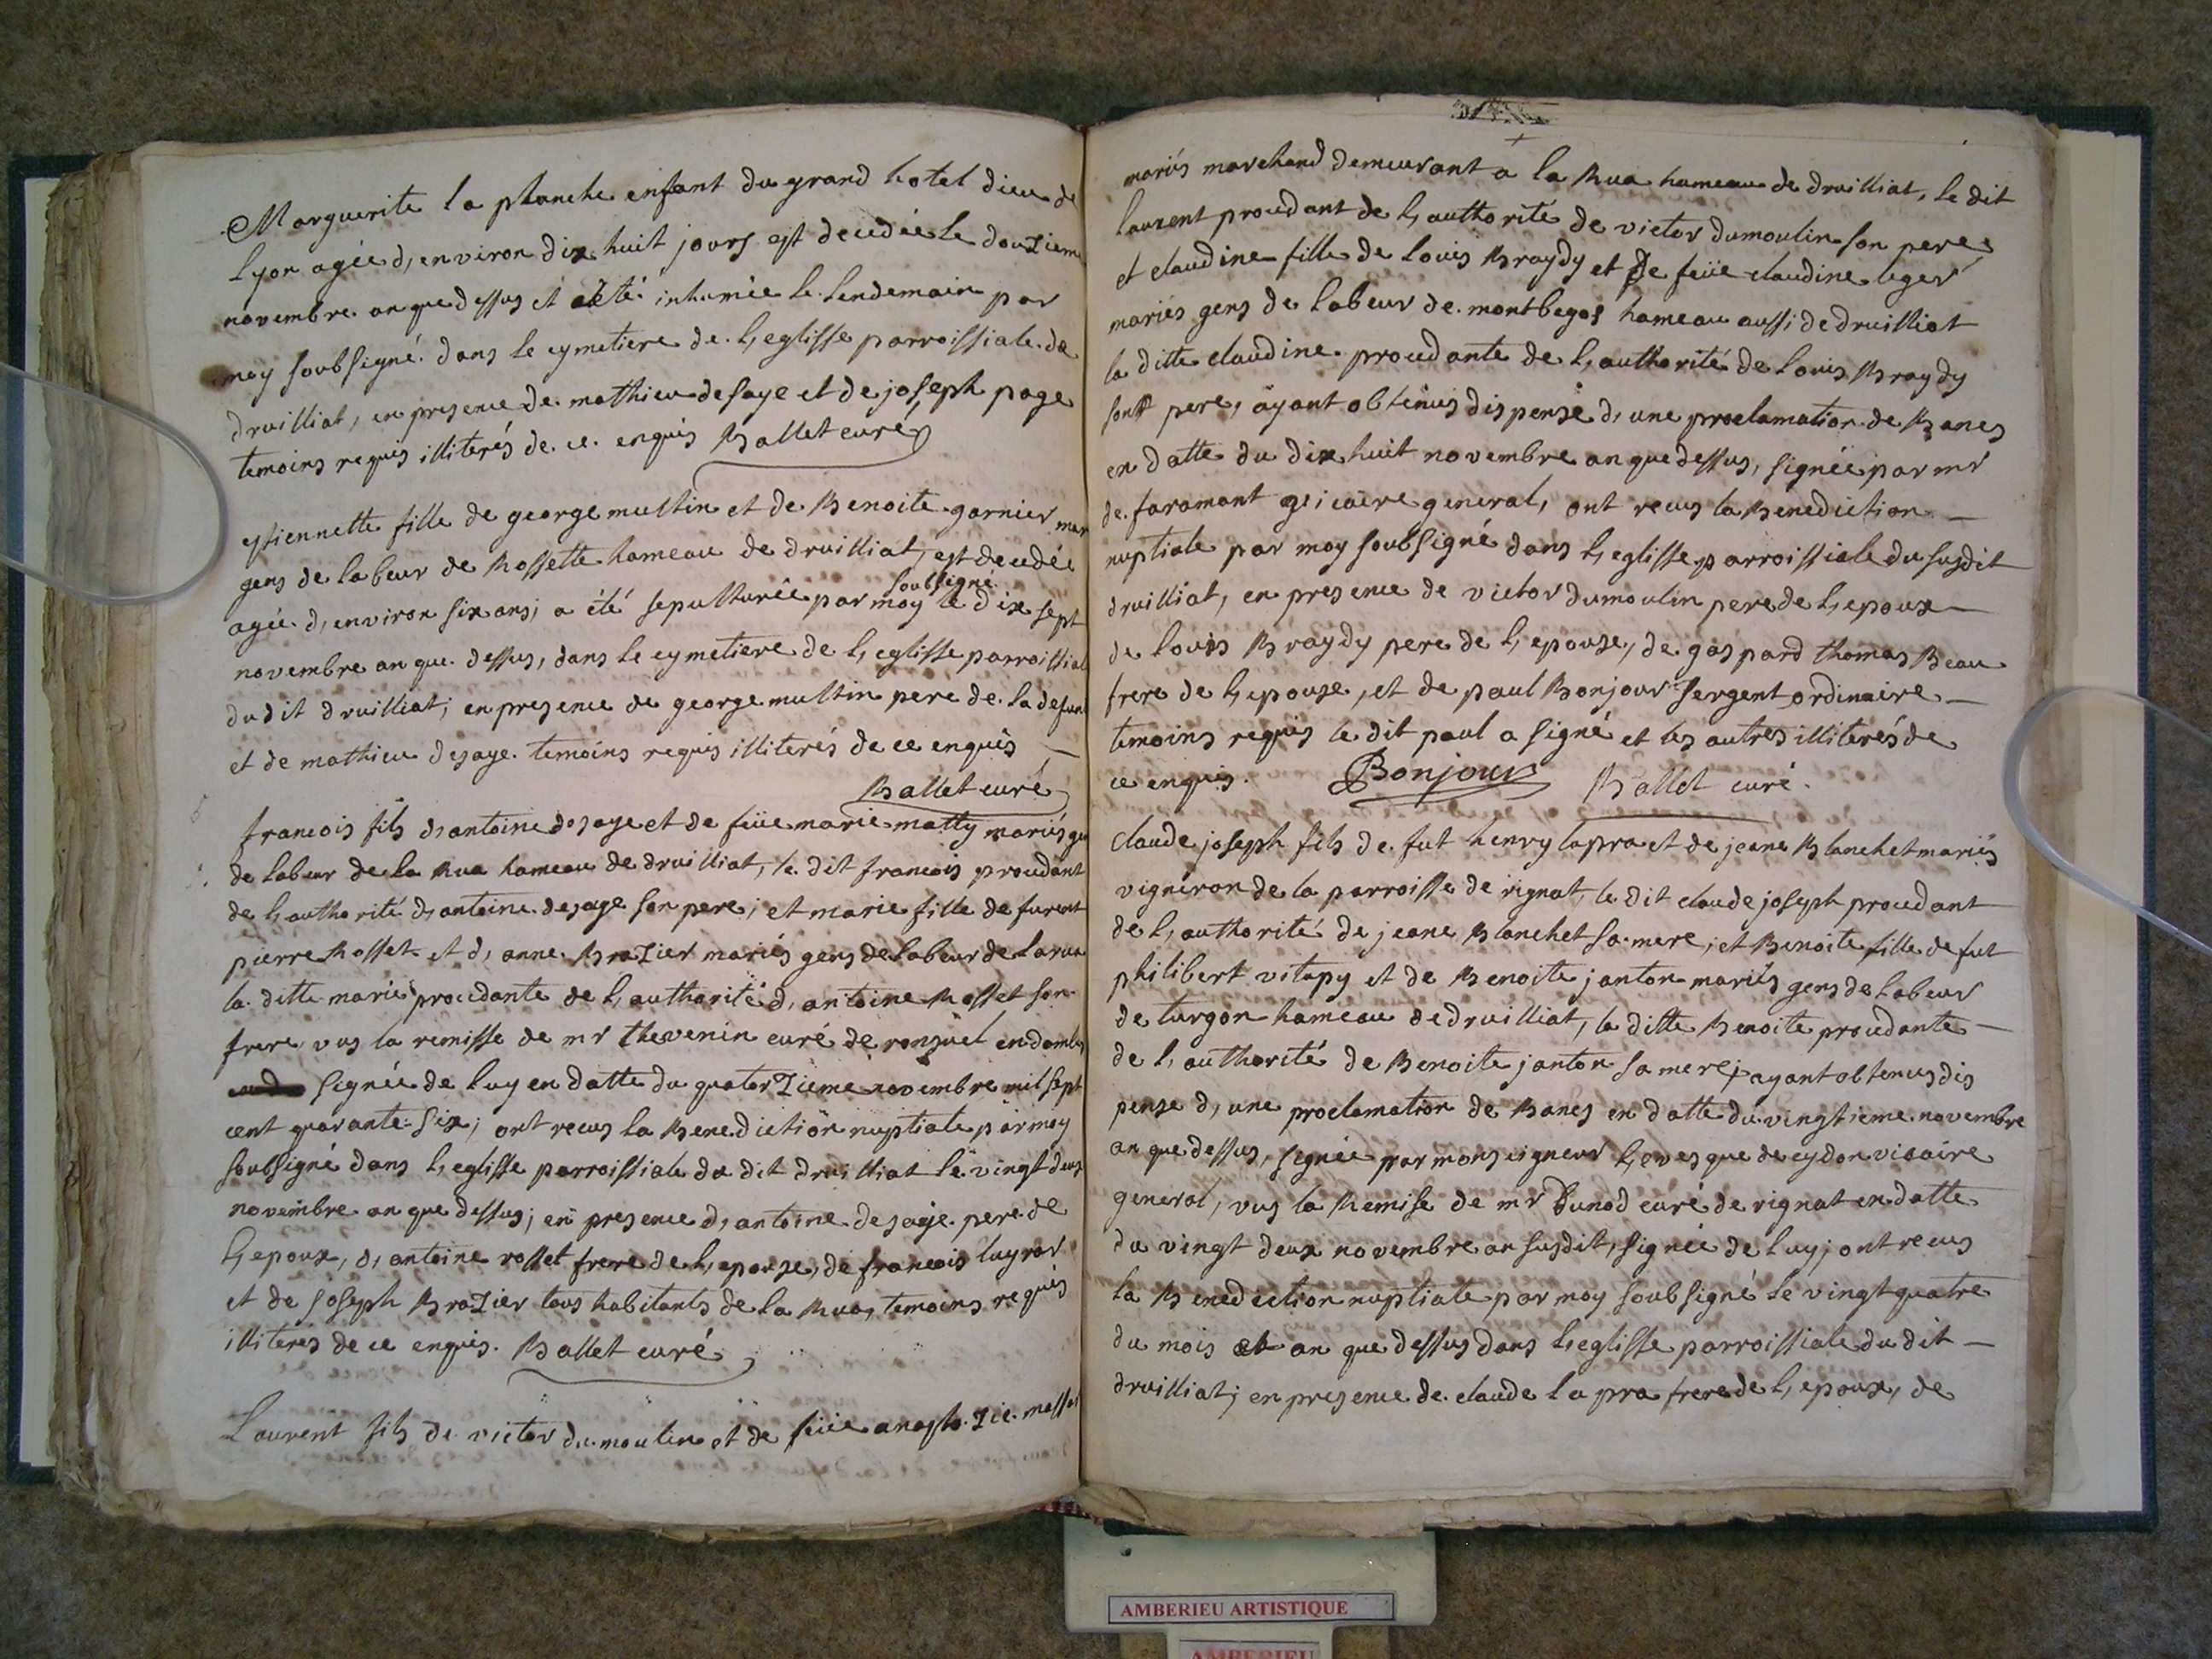 Marguerite la planche enfant du grand hotel dieu de
Lyon agée d, environ dix huit jours est decedée le douzieme
novembre an que dessus et a été inhumée le lendemain par
moy soubsigné dans le cymetiere de l, eglisse parroissiale de
druilliat, en presence de mathieu desaye et de joseph page
temoins requis illiterés de ce enquis Ballet curé
estiennette fille de george multin et de Benoite garnier mar
gens de labeur de Rossette hameau de druilliat, est decedée
agée d, environ six ans, a été sepulturée par moy soubsigné le dix sept
novembre an que dessus, dans le cymetiere de l, eglisse parroissial
dudit druilliat, en presence de george multin pere de la defun
et de mathieu desaye temoins requis illiterés de ce enquis
Ballet curé
francois fils d, antoine desaye et de feüe marie matty mariés gen
de labeur de la Rua hameau de druilliat, le dit francois procedant
de l, authorité d, antoine desaye son pere, et marie fille de furent
pierre Rosset et d, anne Brazier mariés gens de labeur de la rua
la ditte marie procedante de l, authorité d, antoine Rosset son
frere vus la remisse de mr thevenin curé de ronzuel en dombes
signée de luy en datte du quatorzieme novembre mil sept
cent quarante six, ont recus la Benediction nuptiale par moy
soubsigné dans l, eglisse parroissiale du dit druilliat le vingt deux
novembre an que dessus, en presence d, antoine desaye pere de
l, epoux, d, antoine rosset frere de l, epouse, de francois luyrar
et de joseph Brazier tous habitants de la Rua, temoins requis
illiterés de ce enquis. Ballet curé
Laurent fils de victor dumoulin et de feüe
mariés marchand demeurant a la Rua hameau de druilliat, le dit
laurent procedant de l, authorité de victor dumoulin son pere,
et claudine fille de louis Braydy et de feüe claudine leger
mariés gens de labeur de montbegos hameau aussi de druilliat
la ditte claudine procedante de l, authorité de louis Braydy
son pere, ayant obtenus dispense d, une proclamation de Bancs
en datte du dix huit novembre an que dessus, signée par mr
de faramant vicaire general, ont recus la Benediction
nuptiale par moy soubsigné dans l, eglisse parroissiale du susdit
druilliat, en presence de victor dumoulin pere de l, epoux
de louis Braydy pere de l, epouse, de gaspard thomas Beau
frere de l, epouse, et de paul Bonjour sergent ordinaire
temoins requis le dit paul a signé et les autres illiterés de
ce enquis. Bonjour Ballet curé.
Claude joseph fils de fut henry lapra et de jeane Blanchet mariés
vigneron de la parroisse de rignat, le dit claude joseph procedant
de l, authorité de jeane Blanchet sa mere, et Benoite fille de fut
philibert vitapy et de Benoite janton mariés gens de labeur
de turgon hameau de druilliat, la ditte Benoite procedante
de l, authorité de Benoite janton sa mere, ayant obtenus dis
pense d, une proclamation de Bancs en datte du vingtieme novembre
an que dessus, signée par monseigneur l, evesque de cydon vicaire
general, vus la Remise de mr Dunod curé de rignat en datte
du vingt deux novembre an susdit, signée de luy, ont recus
la Benediction nuptiale par moy soubsigné le vingt quatre
du mois et an que dessus dans l, eglisse parroissiale du dit
druilliat, en presence de claude la pra frere de l, epoux, de
AMBERIEU ARTISTIQUE
AMBERIEU